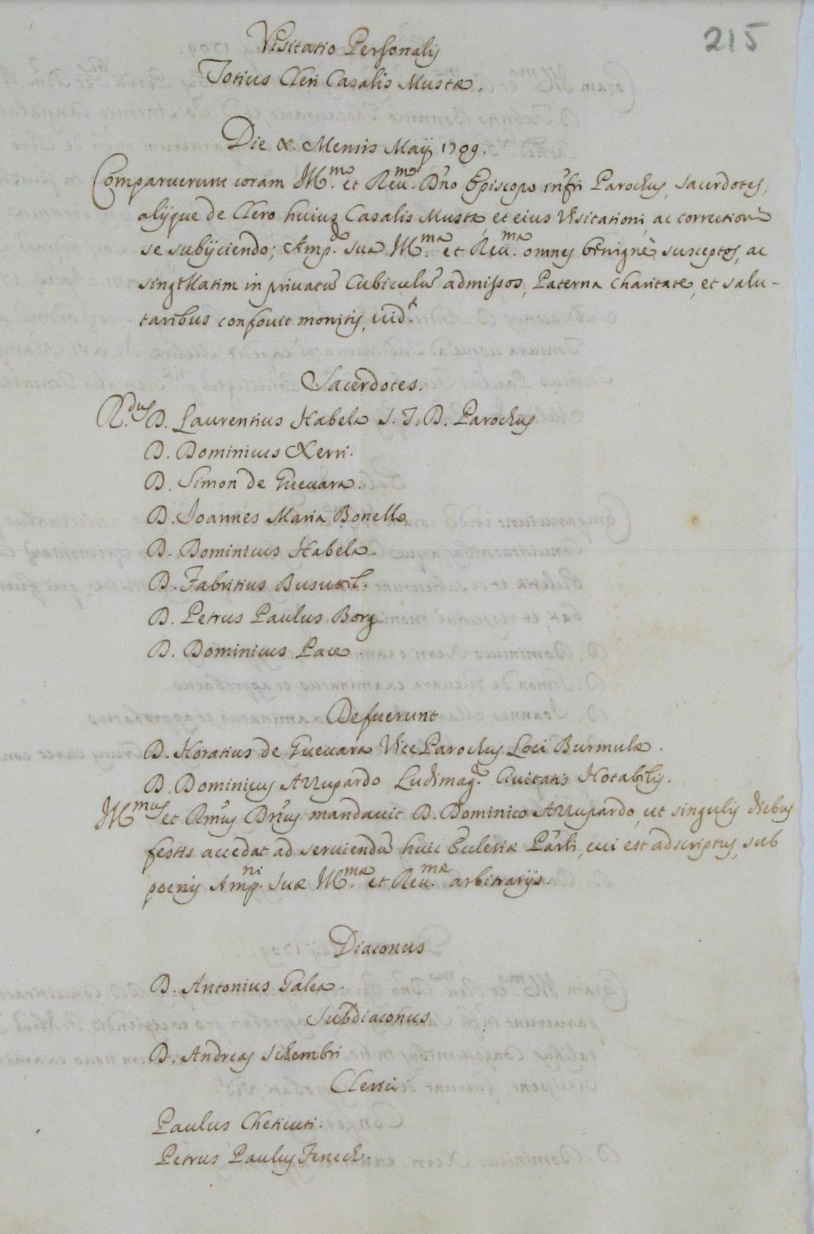 215
Visitatio Personalis
Totius Cleri Casalis Mustæ.
Die 8. Mensis Maij 1709.
Comparuerunt coram Ill.mo et Reu.mo Dño Episcopo infri Parochus, sacerdotes,
alijque de Clero huius Casalis Mustæ et eius Visitationi, ac correctioni
se subijciendo; Amp.do sua Ill.ma et Reu.ma omnes benignè susceptos, ac
singillatim in priuatũ Cubiculũ admissos, Paterna charitate, et salu-
taribus confouit monitis, uid.t
Sacerdotes.
R.dus D. Laurentius Habela S. T. D. Parochus
D. Dominicus Xerri.
D. Simon de Gueuara.
D. Joannes Maria Bonello
D. Dominicus Habela.
D. Fabritius Busuttil.
D. Petrus Paulus Borg.
D. Dominicus Pace.
Defuerunt
D. Horatius de Gueuara ViceParochus Loci Burmulæ.
D. Dominicus Azzupardo Ludimag.r Ciuitatis Notabilis.
Ill.mus et Rmus Dñus mandauit D. Dominico Azzupardo, ut singulis diebus
festis accedat ad seruiendũ huic Ecclesiæ Parli, cui est adscriptus, sub
poenis Amp.ni suæ Ill.mæ et Reu.mæ arbitrarijs.
Diaconus
D. Antonius Galea.
Subdiaconus
D. Andreas Schembri
Clerici
Paulus Cheticuti.
Petrus Paulus Fenech.